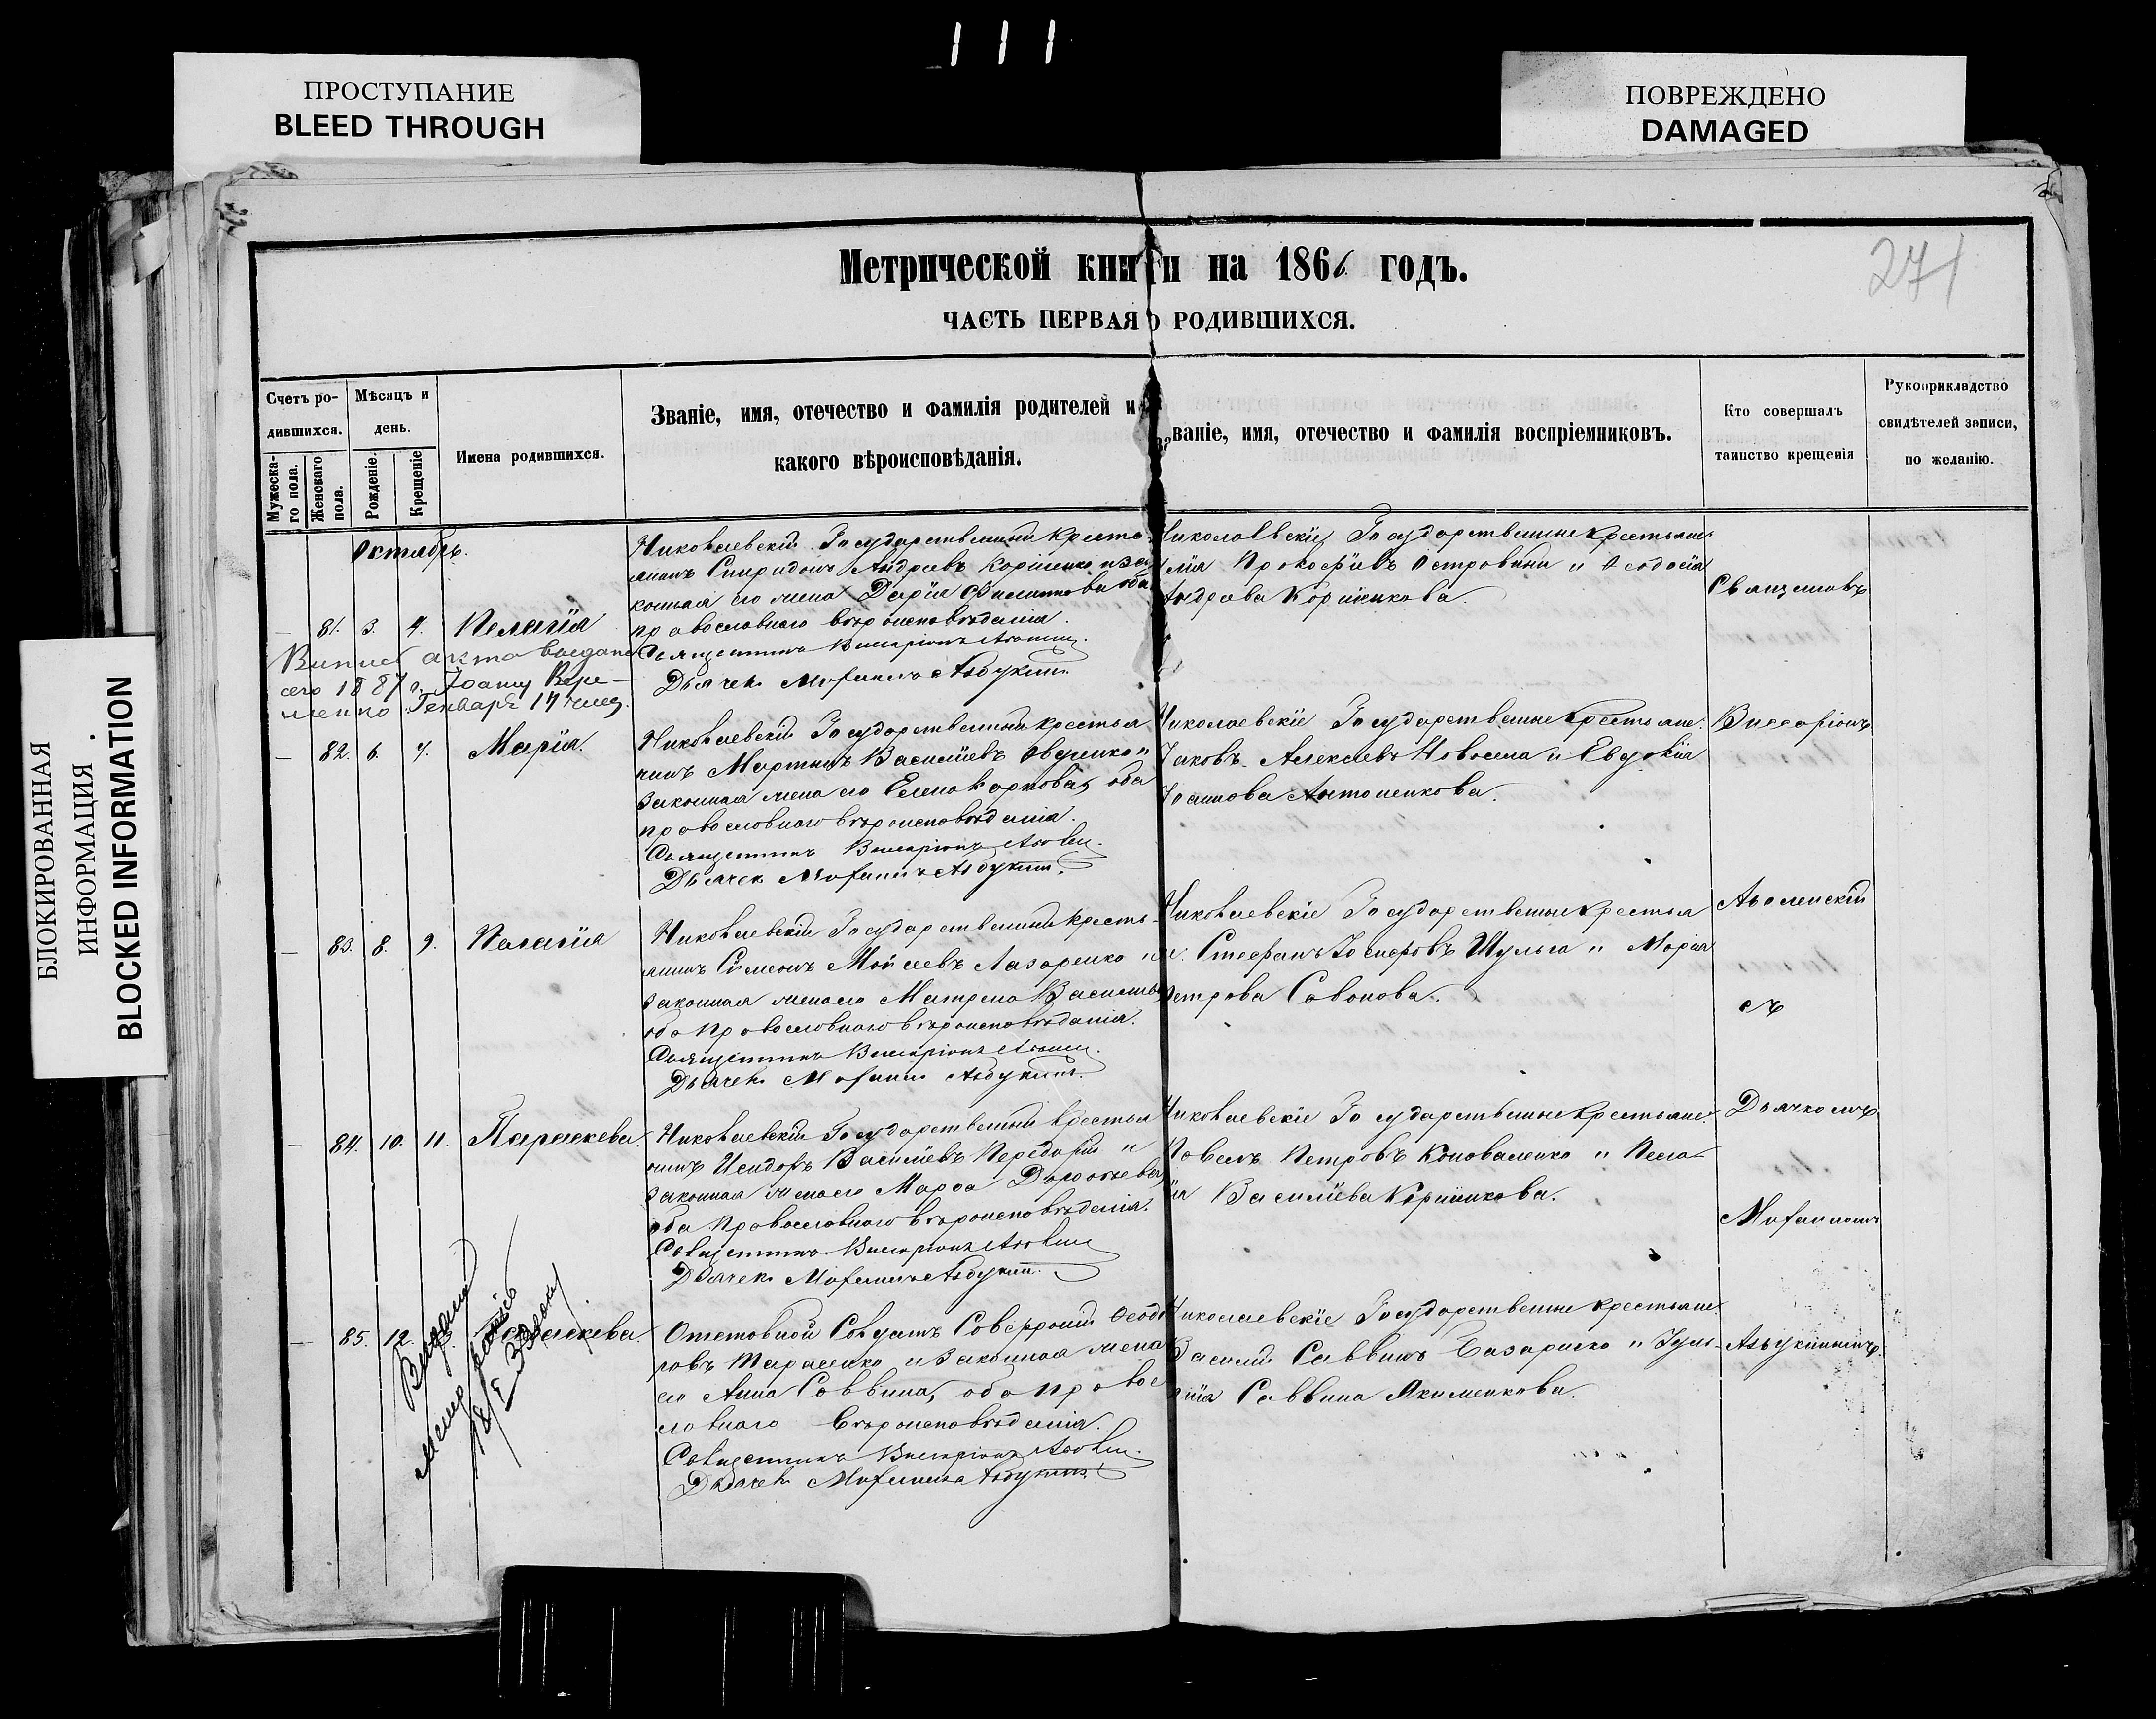 111
ПРОСТУПАНИЕ
BLEED THROUGH
ПОВРЕЖДЕНО
DAMAGED
БЛОКИРОВАННАЯ
ИНФОРМАЦИЯ
BLOCKED INFORMATION
271
Метрической книги на 1866 годъ.
ЧАСТЬ ПЕРВАЯ О РОДИВШИХСЯ.
Счетъ ро-
дившихся.
Мужеска-
го пола.
Женскаго
пола.
Мѣсяцъ и
день.
Рожденіе.
Крещеніе
Имена родившихся.
Званіе, имя, отечество и фамилія родителей и
какого вѣроисповѣданія.
Званіе, имя, отечество и фамилія воспріемниковъ.
Кто совершалъ
таинство крещенія
Рукоприкладство
свидѣтелей записи,
по желанію.
Октябрь.
— 81. 3. 4. Пелагія
Николаевскій Государственный кресть-
янинъ Спиридонъ Андреевъ Коріненко и за-
конная его жена Дарія Филиппова оба
православнаго вѣроисповѣданія.
Священникъ Виссаріонъ
Дьячекъ Мифаилъ Азбукинъ.
Николаевскіе Государственные крестьяне
Прокофіевъ Островный и Ѳеодосія
Андреева Коріненкова.
1887 г. Іоанну
Генваря 14
— 82. 6. 7. Марія.
Николаевскій Государственный крестья
нинъ Мартинъ Василіевъ Овдіенко и
законная жена его Елена Карпова, оба
православнаго вѣроисповѣданія.
Священникъ Виссаріонъ
Дьячек Мифаилъ Азбукинъ.
Николаевскіе Государственные крестьяне.
Яковъ Алексіевъ Новосела и Евдокія
Іоаннова Антоненкова.
— 83. 8. 9. Пелагія
Николаевскій Государственный кресть-
янинъ Сімеонъ Моисеевъ Лазаренко и
законная жена его Матрена Василіева
оба православнаго вѣроисповѣданія.
Священникъ Виссаріонъ
Дьячекъ Мифаилъ Азбукинъ.
Николаевскіе Государственные крестья
не. Стефанъ Іосифовъ Шульга и Марія
Петрова Савонова.
— 84. 10. 11. Параскева.
Николаевскій Государственный крестья
нинъ Исидоръ Василіевъ Передерій и
законная жена его Марѳа Дороѳеева,
оба православнаго вѣроисповѣданія.
Священникъ Виссаріонъ
Дьячекъ Мифаилъ Азбукинъ.
Николаевскіе Государственные крестьяне.
Павелъ Петровъ Коноваленко и Пела-
гія Василіева Коріненкова.
— 85. 12. Параскева.
Отставной Солдатъ Софроній Ѳеодо
ровъ Тарасенко и законная жена
его Анна Саввина, оба правос
лавнаго вѣроисповѣданія.
Священникъ Виссаріонъ
Дьячекъ Мифаилъ Азбукинъ.
Николаевскіе Государственные крестьяне
Василій Саввинъ Базарнско и Іулі-
анія Саввина Якименкова.
Священникъ
Виссаріонъ
съ
Дьячкомъ
Мифаиломъ
Азбукинымъ.